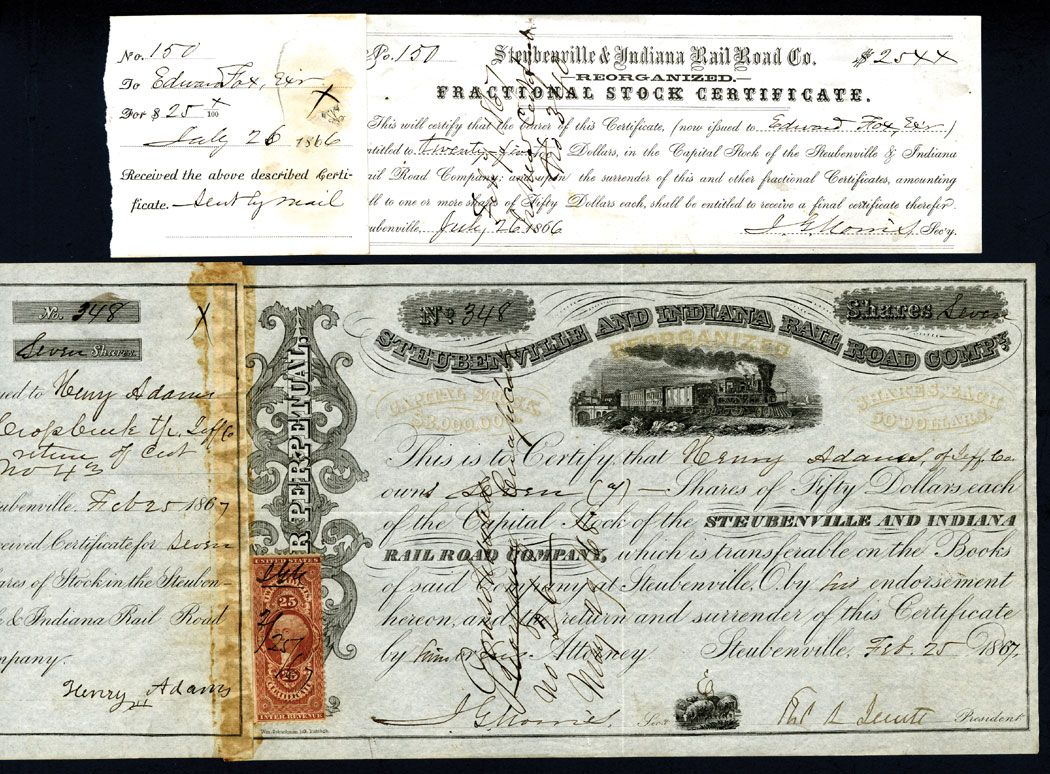 No. 150
To Edward Fox, Exr
For $ 25 x/100
July 26 1866
Received the above described Certi-
ficate. Sent by mail
No. 150 Steubenville & Indiana Rail Road Co. $25xx
REORGANIZED.
FRACTIONAL STOCK CERTIFICATE.
This will certify that the bearer of this Certificate, (now issued to Edward Fox, Exr )
entitled to twenty five Dollars, in the Capital Stock of the Steubenville & Indiana
ail Road Company; and upon the surrender of this and other fractional Certificates, amounting
ll to one or more shares of Fifty Dollars each, shall be entitled to receive a final certificate therefor.
ubenville, July 26 1866 J. G. Morris, Sec'y.
No. 348 X
Seven Shares
ued to Henry Adams
return of Cert
No 43
ubenville, Feb 25 1867
ceived Certificate for Seven
ares of Stock in the Steuben-
& Indiana Rail Road
mpany.
Henry Adams
PERPETUAL.
UNITED STATES
25
25
CERTIFICATE
INTER. REVENUE
No 348 Shares Seven
STEUBENVILLE AND INDIANA RAIL ROAD COMPY.
REORGANIZED
CAPITAL STOCK, $3,000,000. SHARES, EACH 50 DOLLARS.
This is to Certify, that Henry Adams, of Jeff. Co.
owns Seven (7) Shares of Fifty Dollars each
of the Capital Stock of the STEUBENVILLE AND INDIANA
RAIL ROAD COMPANY, which is transferable on the Books
of said Company at Steubenville, O. by his endorsement
hereon, and return and surrender of this Certificate
by him or Attorney Steubenville, Feb. 25 1867
J. G. Morris. Secy President